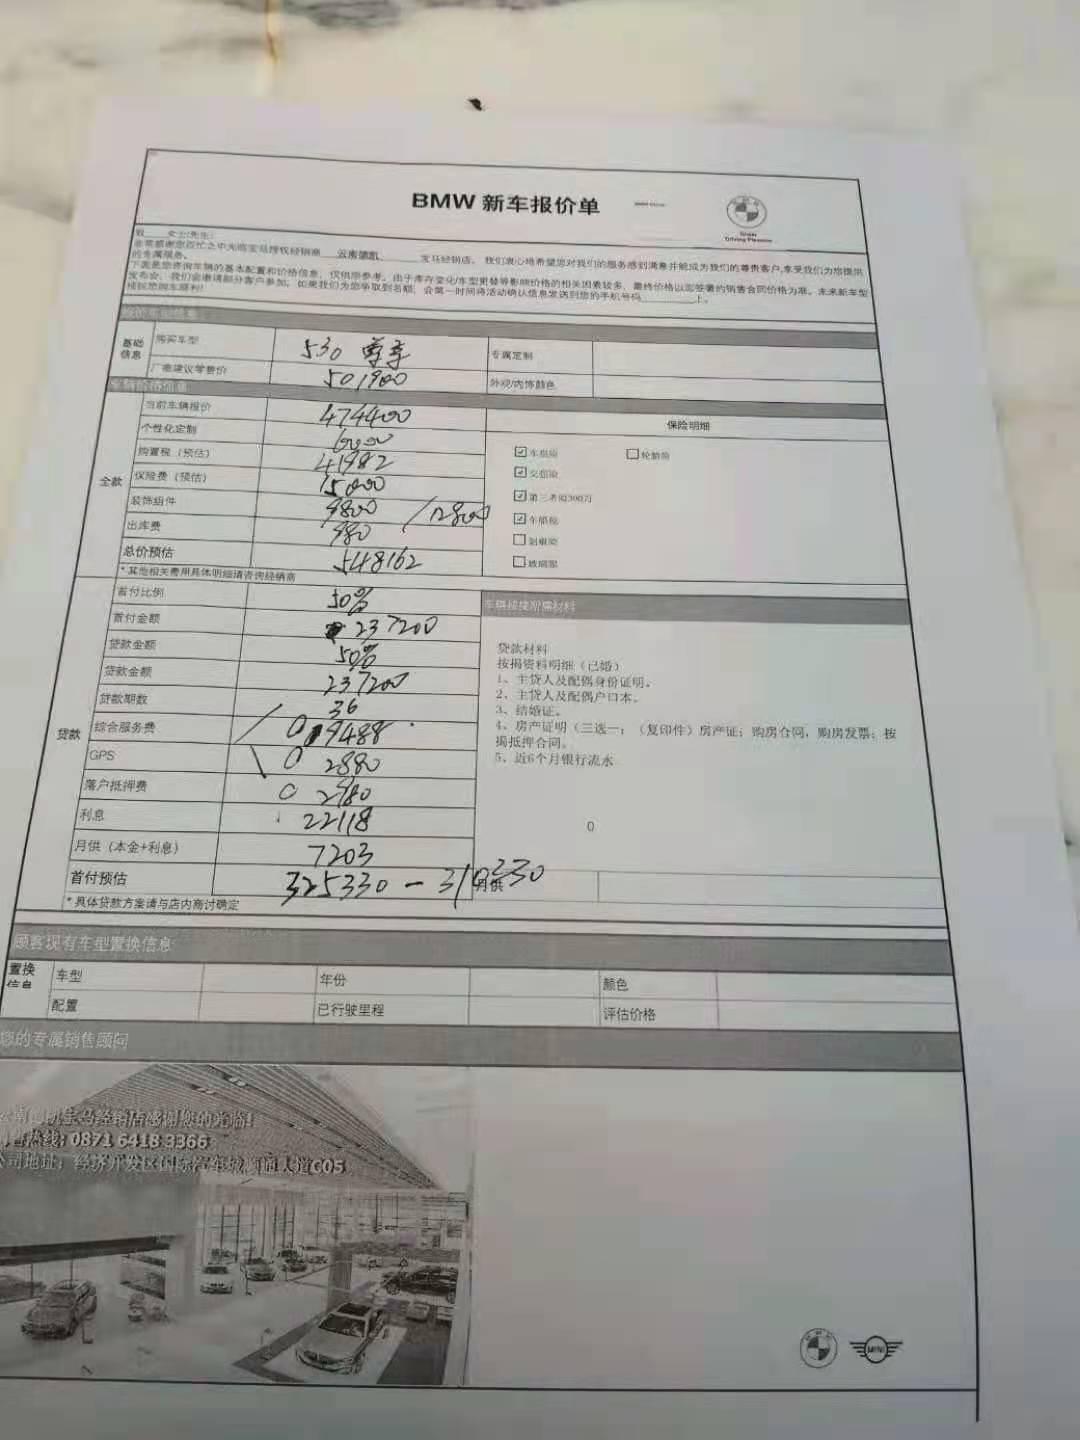 BMW 新车报价单
女士/先生:
非常感谢您百忙之中光临宝马授权经销商 云南德凯 宝马经销店。我们衷心地希望您对我们的服务感到满意并能成为我们的尊贵客户,享受我们为您提供
的专属服务。
下面是您咨询车辆的基本配置和价格信息,仅供您参考。由于库存变化/车型更替等影响价格的相关因素较多,最终价格以您签署的销售合同价格为准。未来新车型
发布会,我们会邀请部分客户参加。如果我们为您争取到名额,会第一时间将活动确认信息发送到您的手机号码 上。
基础信息
购买车型 530 尊享 专属定制
厂商建议零售价 501900 外观/内饰颜色
车辆价格信息
全款
当前车辆报价 474400 保险明细
个性化定制 6000
购置税(预估) 41982 车损险 轮胎险
保险费(预估) 15000 交强险
装饰组件 9800 /12800 第三者险300万
出库费 980 车船税
总价预估 548162 划痕险
玻璃险
* 其他相关费用具体明细请咨询经销商
贷款
首付比例 50% 车辆按揭所需材料
首付金额 237200
贷款金额 50%
贷款金额 237200
贷款期数 36
综合服务费 0 9488
GPS 0 2880
落户抵押费 0 2980
利息 22118
月供(本金+利息) 7203
首付预估 325330 - 310230 月供
* 具体贷款方案请与店内商讨确定
贷款材料
按揭资料明细(已婚)
1、主贷人及配偶身份证明。
2、主贷人及配偶户口本。
3、结婚证。
4、房产证明(三选一;(复印件)房产证;购房合同,购房发票;按
揭抵押合同。
5、近6个月银行流水
0
顾客现有车型置换信息
置换信息
车型 年份 颜色
配置 已行驶里程 评估价格
您的专属销售顾问
宝马经销店感谢您的光临!
热线: 0871 6418 3366
公司地址: 经济开发区国际汽车城 大道C05
MINI